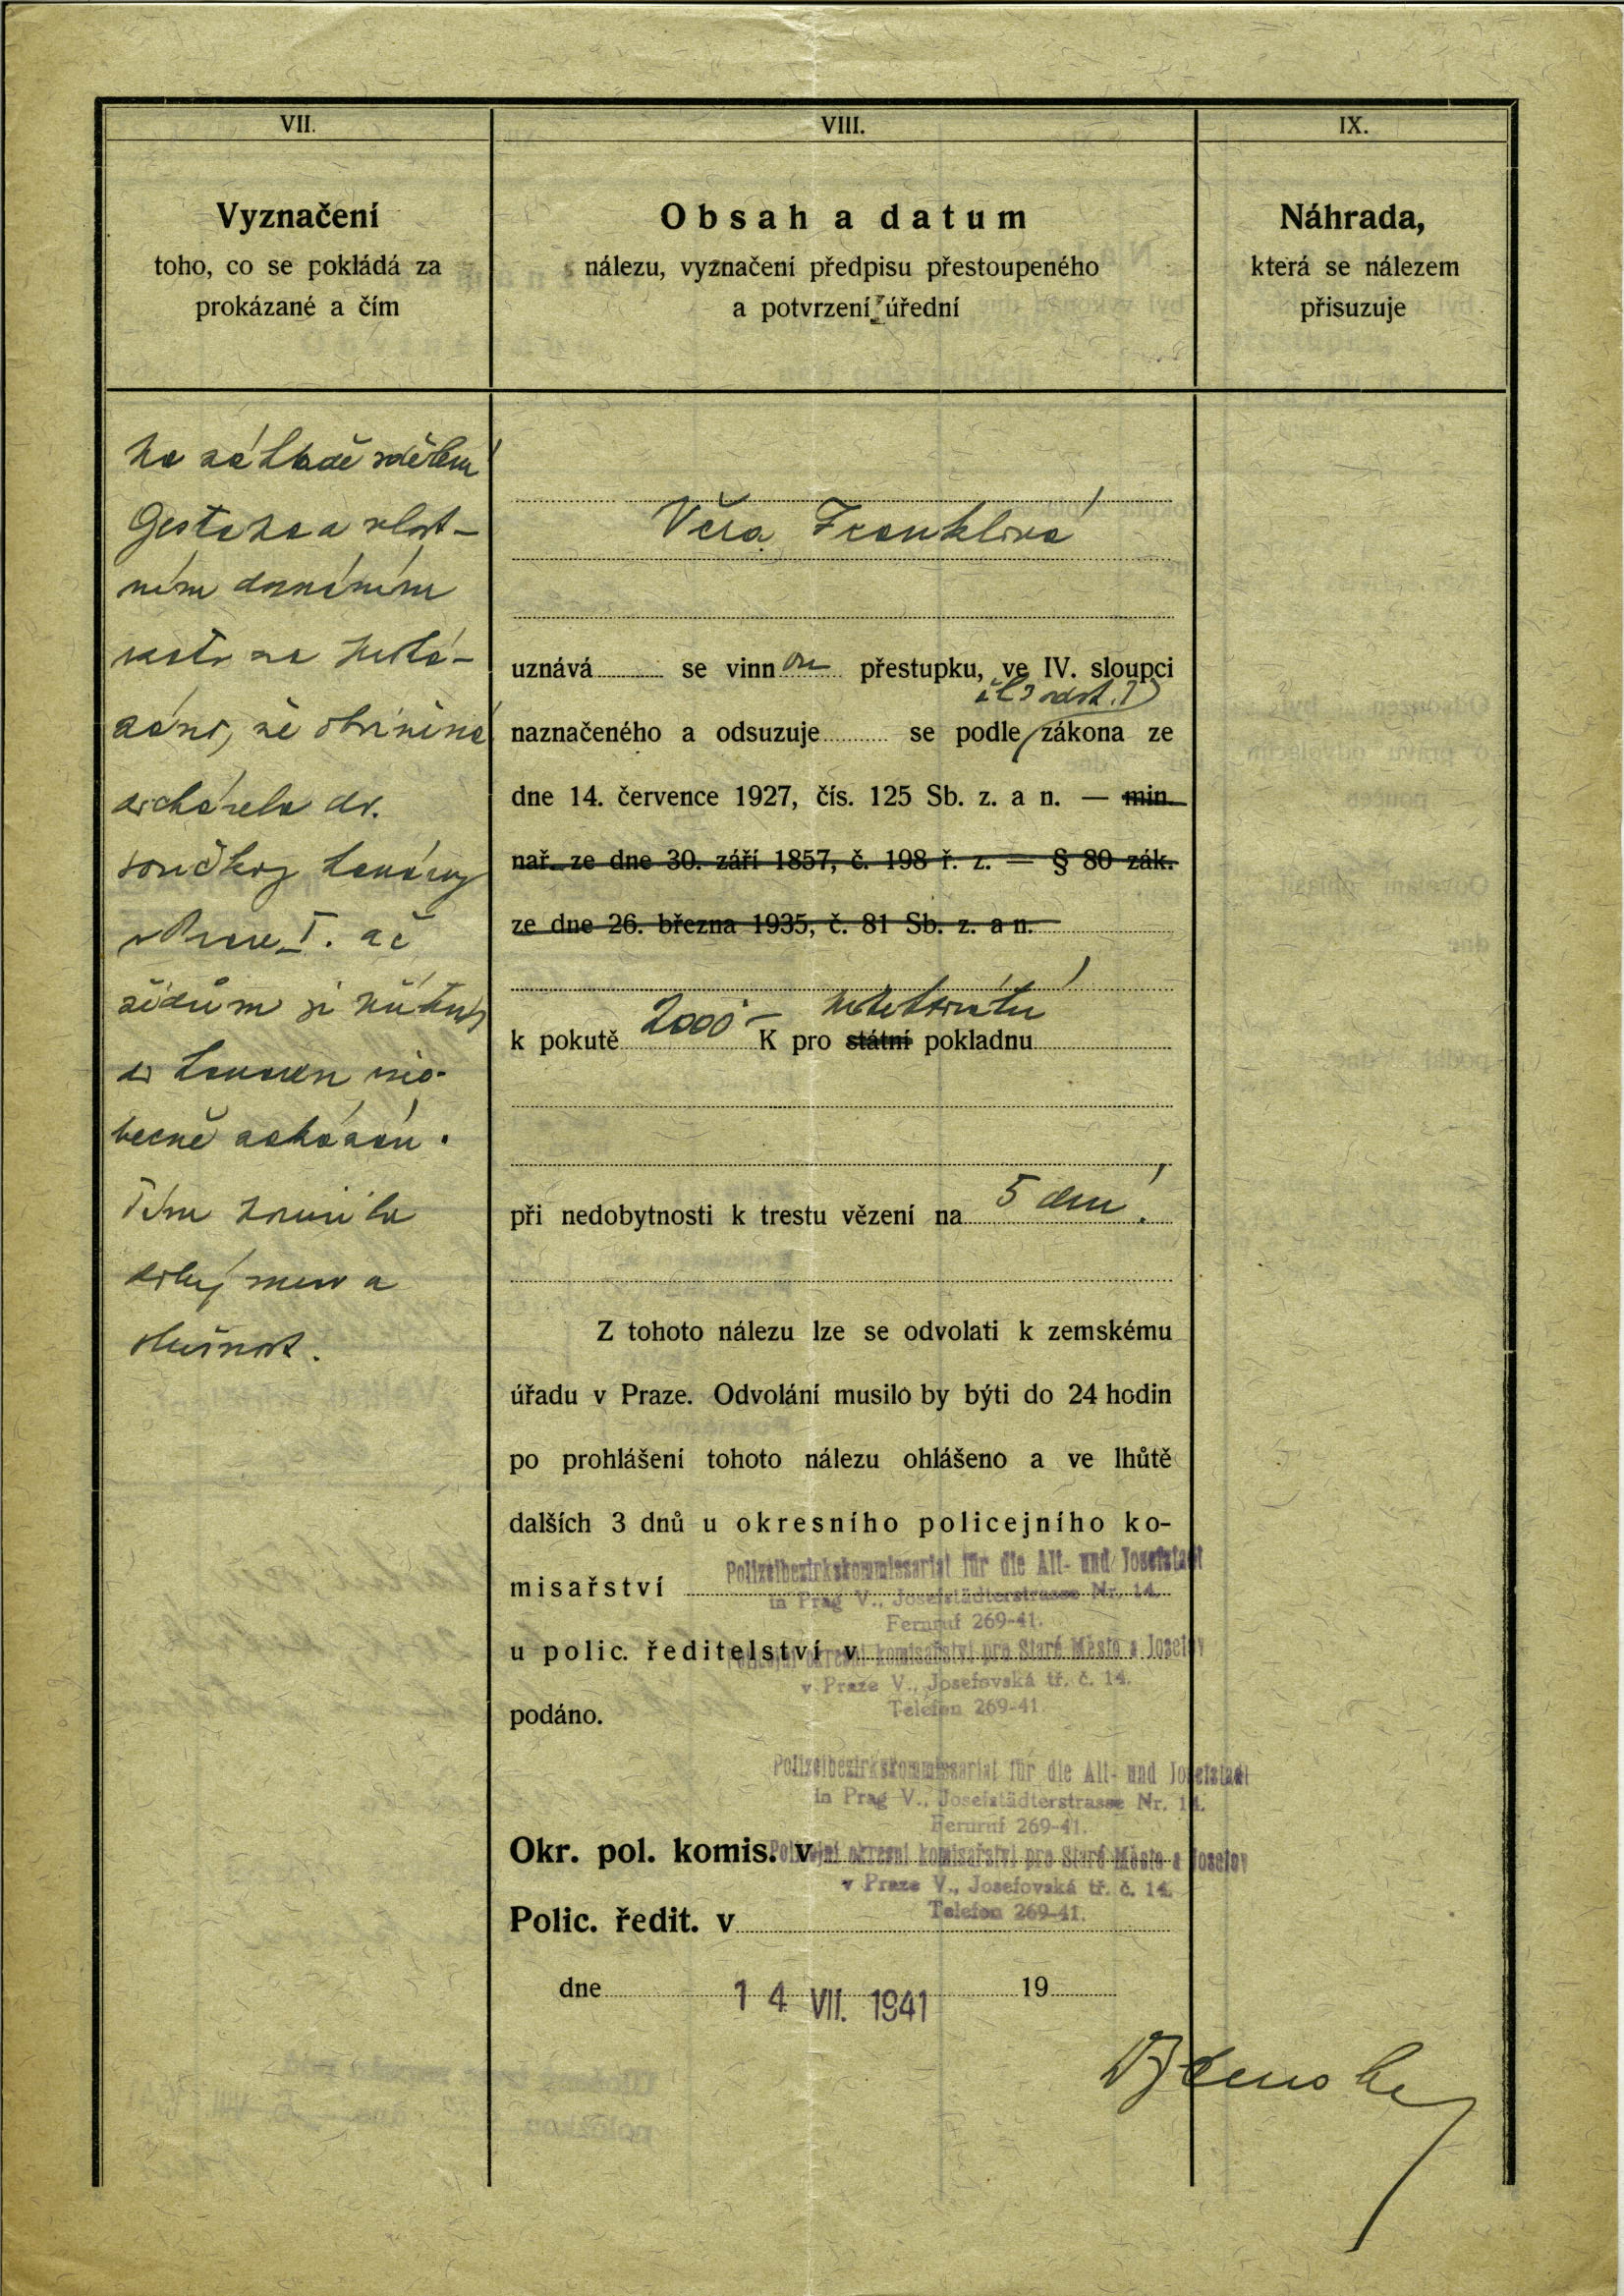 VII.
Vyznačení
toho, co se pokládá za
prokázané a čím
Na základě sdělení
Gestapa a vlast-
ním doznáním
vzato za proká-
záno, že obviněná
docházela do
soudkyj kavárny
v Praze I. ač
židům je přístup
do kaváren vše-
becně zakázán.
Tím porušila
dobrý mrav a
slušnost.
VIII.
Obsah a datum
nálezu, vyznačení předpisu přestoupeného
a potvrzení úřední
Věra Franklová
uznává se vinnou přestupku, ve IV. sloupci
čl 3 odst. 1)
naznačeného a odsuzuje se podle zákona ze
dne 14. července 1927, čís. 125 Sb. z. a n. — min.
nař. ze dne 30. září 1857, č. 198 ř. z. — § 80 zák.
ze dne 26. března 1935, č. 81 Sb. z. a n.
k pokutě 2000 — K pro státní pokladnu
při nedobytnosti k trestu vězení na 5 dnů.
Z tohoto nálezu lze se odvolati k zemskému
úřadu v Praze. Odvolání musilo by býti do 24 hodin
po prohlášení tohoto nálezu ohlášeno a ve lhůtě
dalších 3 dnů u okresního policejního ko-
misařství
Polizeibezirkskommissariat für die Alt- und Josefstadt
in Prag V., Josefstädterstrasse Nr. 14.
Fernruf 269-41.
u polic. ředitelství v
Policejní okresní komisařství pro Staré Město a Josefov
v Praze V., Josefovská tř. č. 14.
Telefon 269-41
podáno.
Polizeibezirkskommissariat für die Alt- und Josefstadt
in Prag V., Josefstädterstrasse Nr. 14.
Fernruf 269-41.
Okr. pol. komis. v
Policejní okresní komisařství pro Staré Město a Josefov
v Praze V., Josefovská tř. č. 14.
Telefon 269-41.
Polic. ředit. v
dne 14 VII. 1941 19
IX.
Náhrada,
která se nálezem
přisuzuje